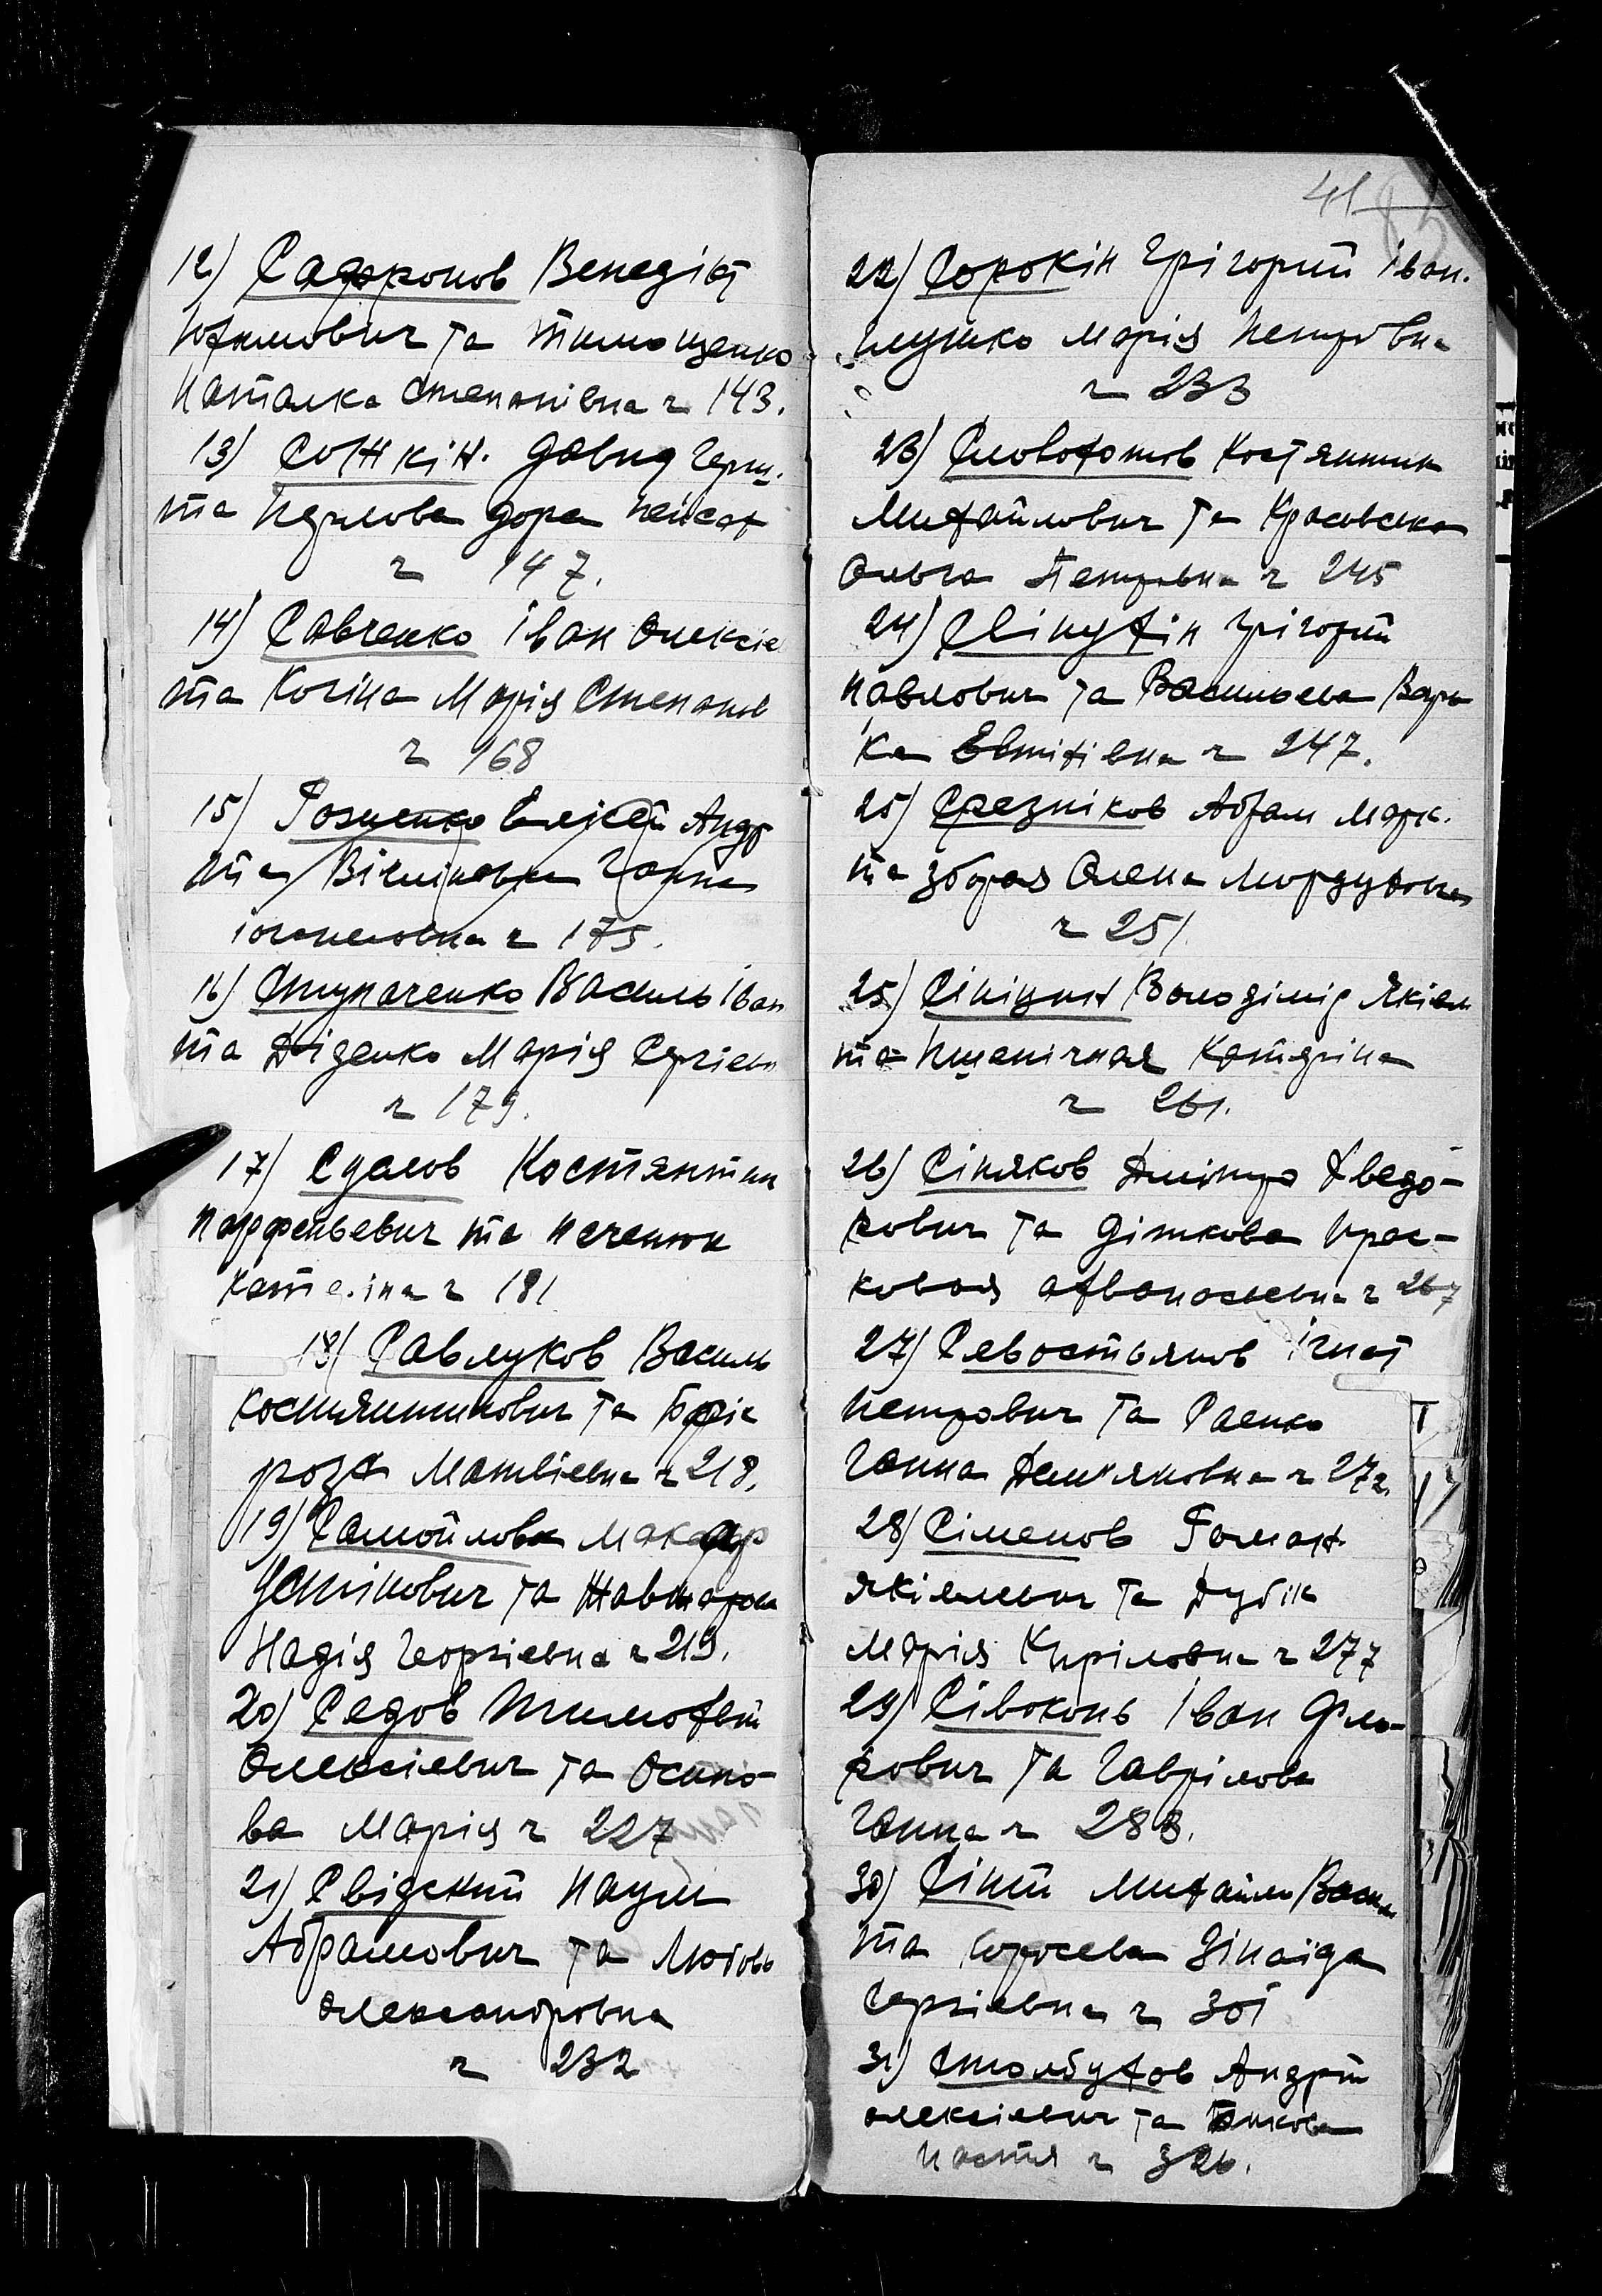 12) Сафронов Венедікт
Юхимович та Тимощенко
Наталка Степанівна ч 143.
13) Соткін. Давид Герш.
та Перлова Дора Пейсах
ч 147.
14) Савченко Іван Олексіе
та Кочіна Марія Степанів
ч 168
15) Розненко Елісей Андр
та Ганна
ч 175.
16) Ступаченко Василь Іван
та Діденко Марія Сергіевн
ч 179.
17) Судаков Костянтин
Парфеньевич та Печенюк
ч 181
18) Павлуков Василь
Костянтинович та
роза Матвіевна ч 218.
19) Самойлова Макар
Устінович та
Надія Георгіевна ч 219.
20) Седов Тимофей
Олексіевич та Осипо-
ва Марія ч 227
21) Свідский Наум
Абрамович та Любовь
Олександровна
ч 232
41
22) Сорокін Грігорий Іван.
Глушко Марія Петровна
ч 233
23) Словохотов Костянтин
Михайлович та Красовська
Ольга Петровна ч 245
24) Слінухін Грігорий
Павлович та Васильева Вар
ка Евтіхівна ч 247.
25) Срезніков Абрам Марк.
та Збораs Олена Мордуховна
ч 251.
25) Сініцин Володімір Якім
та Пшенічная Катеріна
ч 261.
26) Сіняков Дмітро Хведо-
рович та Діткова Прас-
ковая Афванасьевна ч 267
27) Севостьянов Ігнат
Петрович та Раенко
Ганна Дем'яновна ч 272.
28) Сіменов Роман
Якімлевич та Дубік
Марія Кирілловна ч 277
29) Сівоконь Іван Фло-
рович та Гаврілова
Ганна ч 283.
30) Сіний Михайло Васил
та Зінаїда
Сергіевна ч 301
31) Столбухов Андрій
Олексіевич та
Настя ч 326.